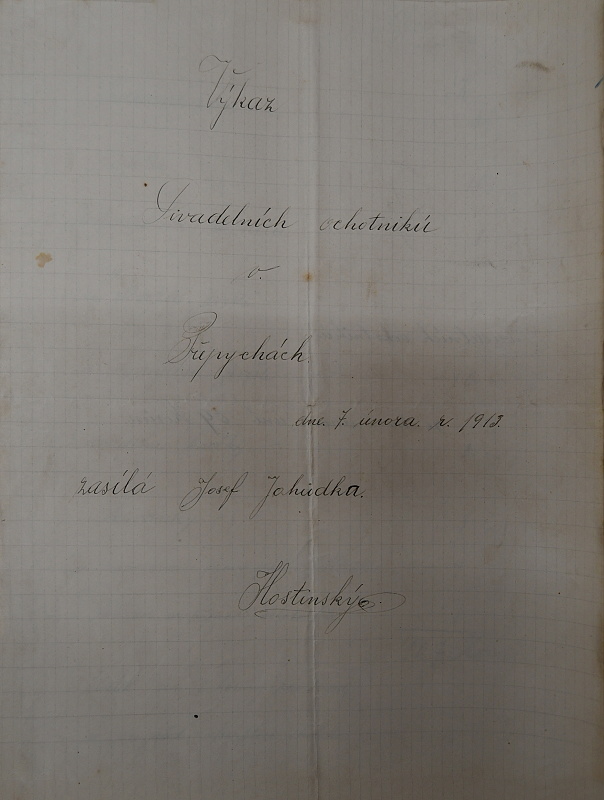 Výkaz
Divadelních ochotniků
v.
Třpychách
dne. 7. února. r. 1913.
zasílá Josef Jahůdka.
Hostinský